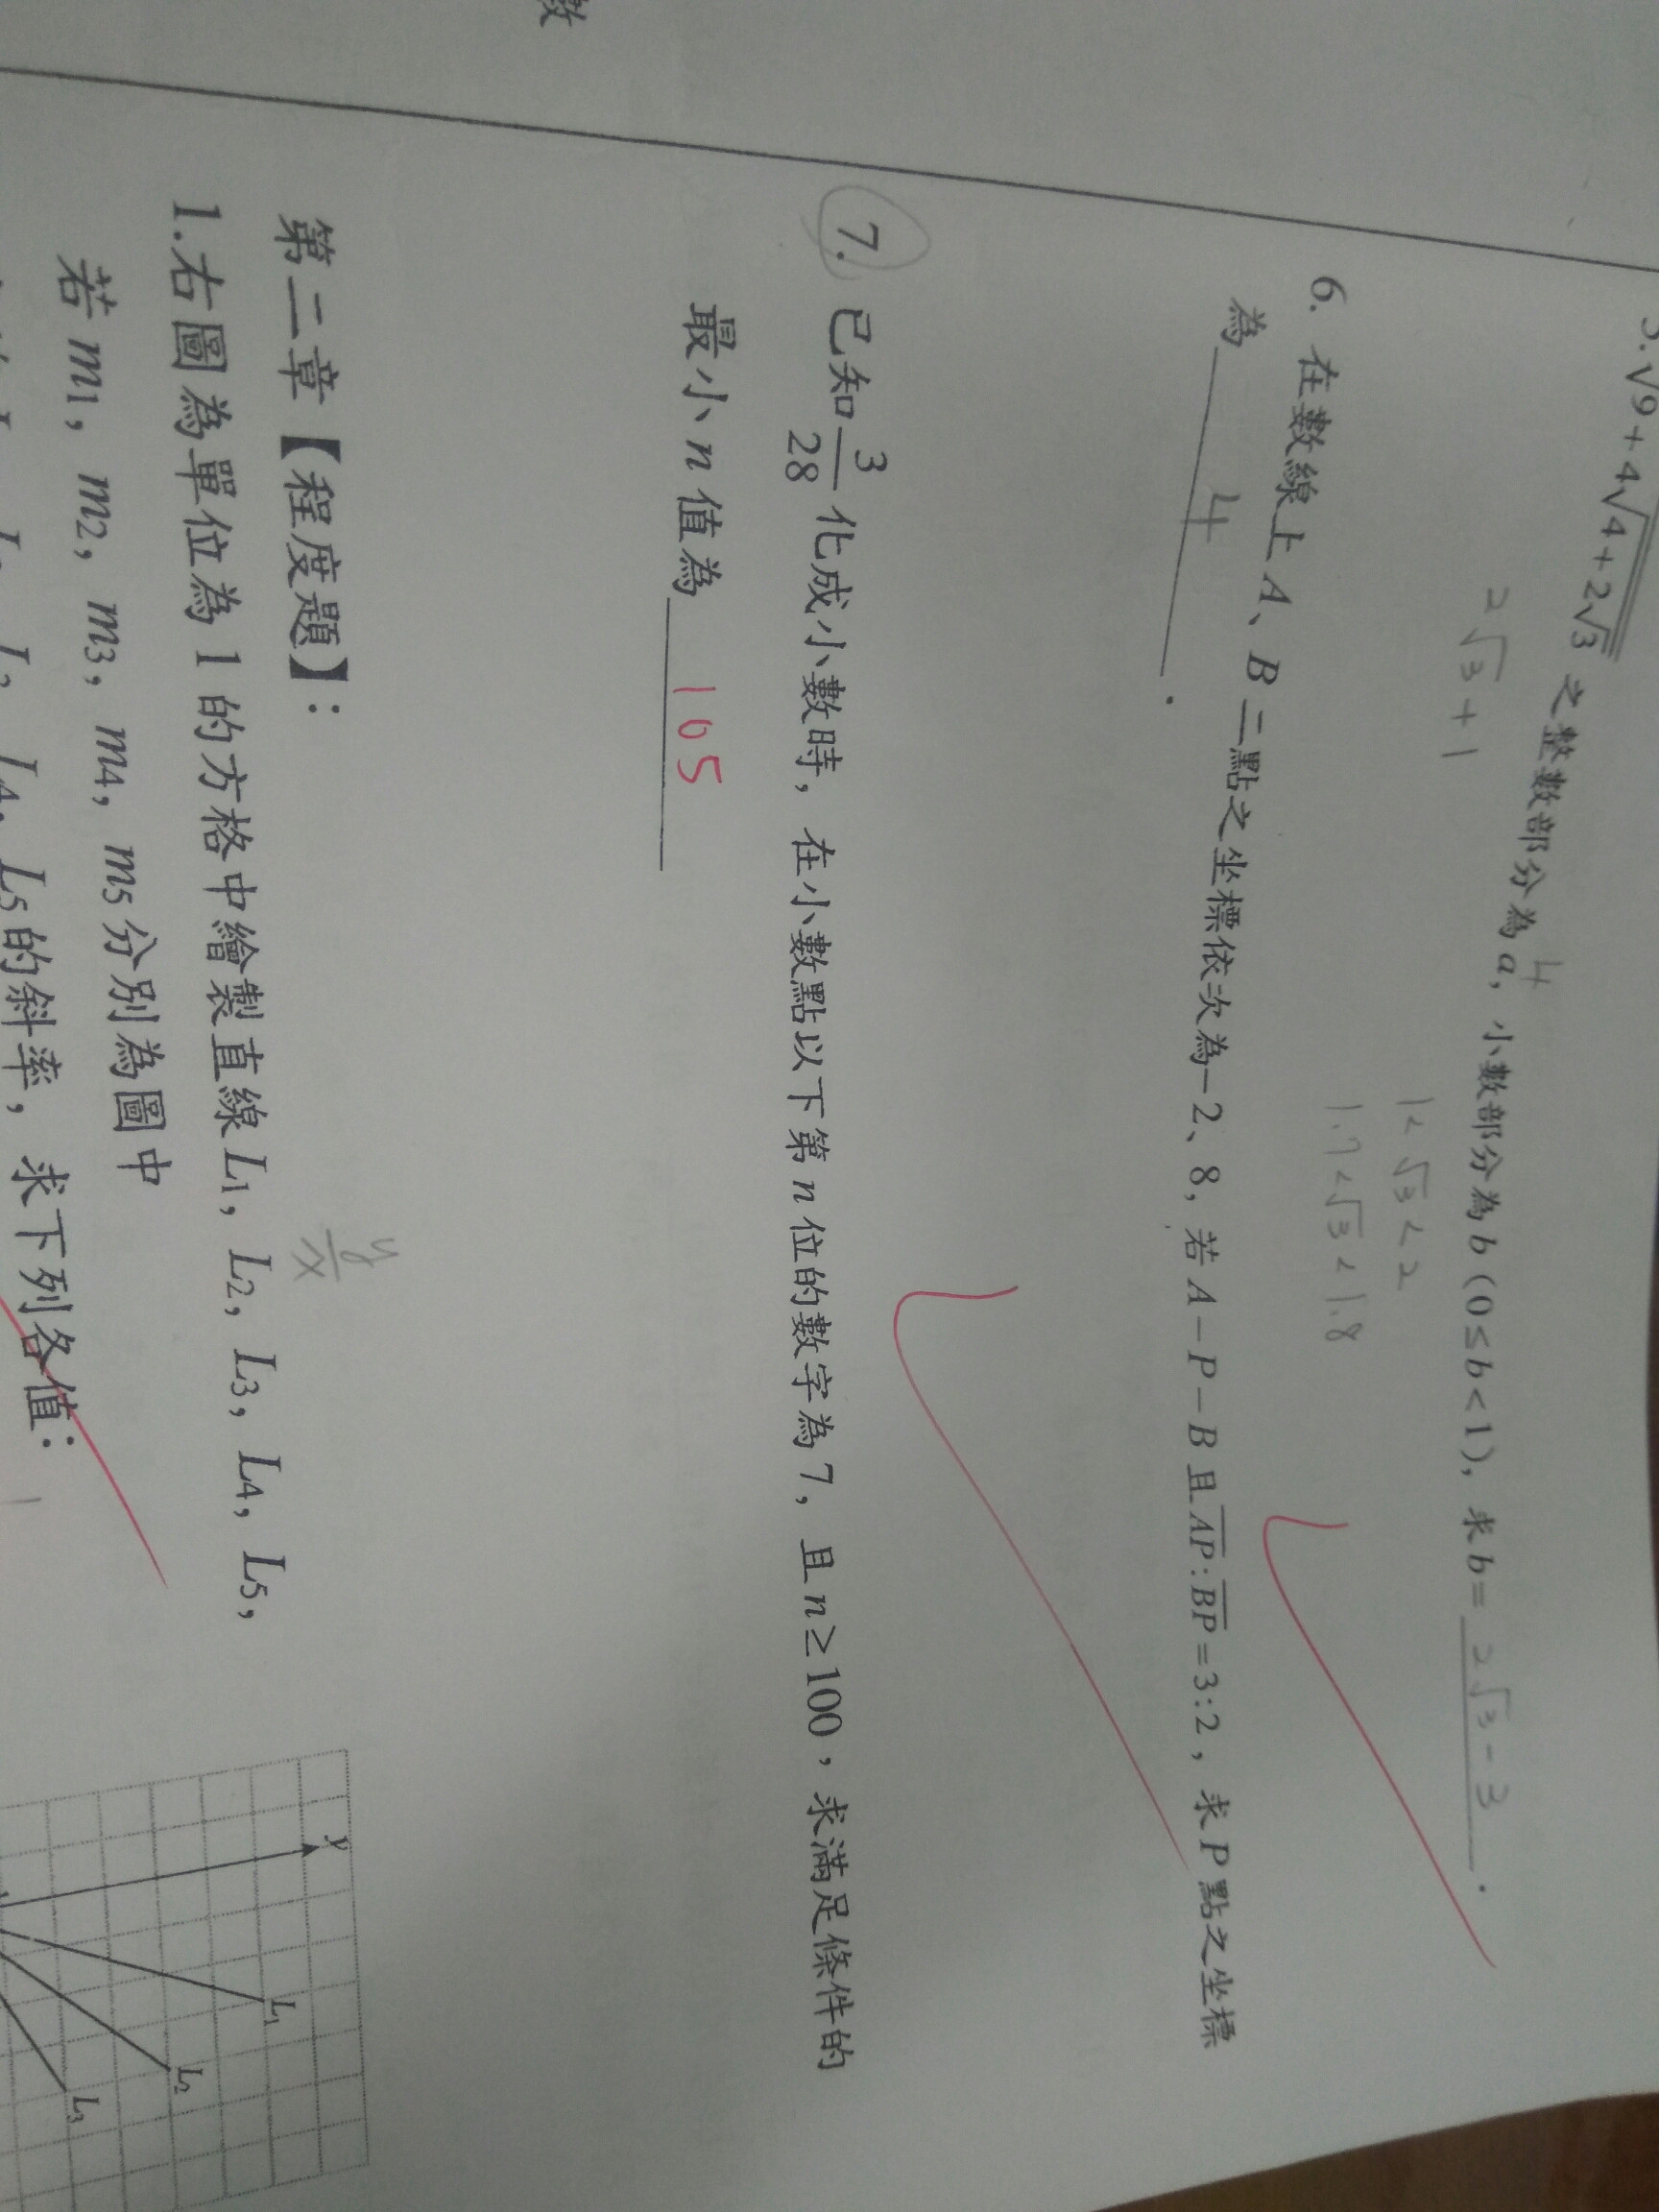 數
5.√9+4√4+2√3 之整數部分為a，小數部分為b(0≤b<1)，求b= 2√3-3 .
4
2√3+1
1<√3<2
1.7<√3<1.8
6. 在數線上A、B二點之坐標依次為-2、8，若A-P-B且AP:BP=3:2，求P點之坐標
為 4 .
7. 已知3/28化成小數時，在小數點以下第n位的數字為7，且n≥100，求滿足條件的
最小n值為 105
第二章【程度題】:
y/x
1.右圖為單位為1的方格中繪製直線L1，L2，L3，L4，L5，
若m1，m2，m3，m4，m5分別為圖中
L4，L5的斜率，求下列各值:
y
L1
L2
L3